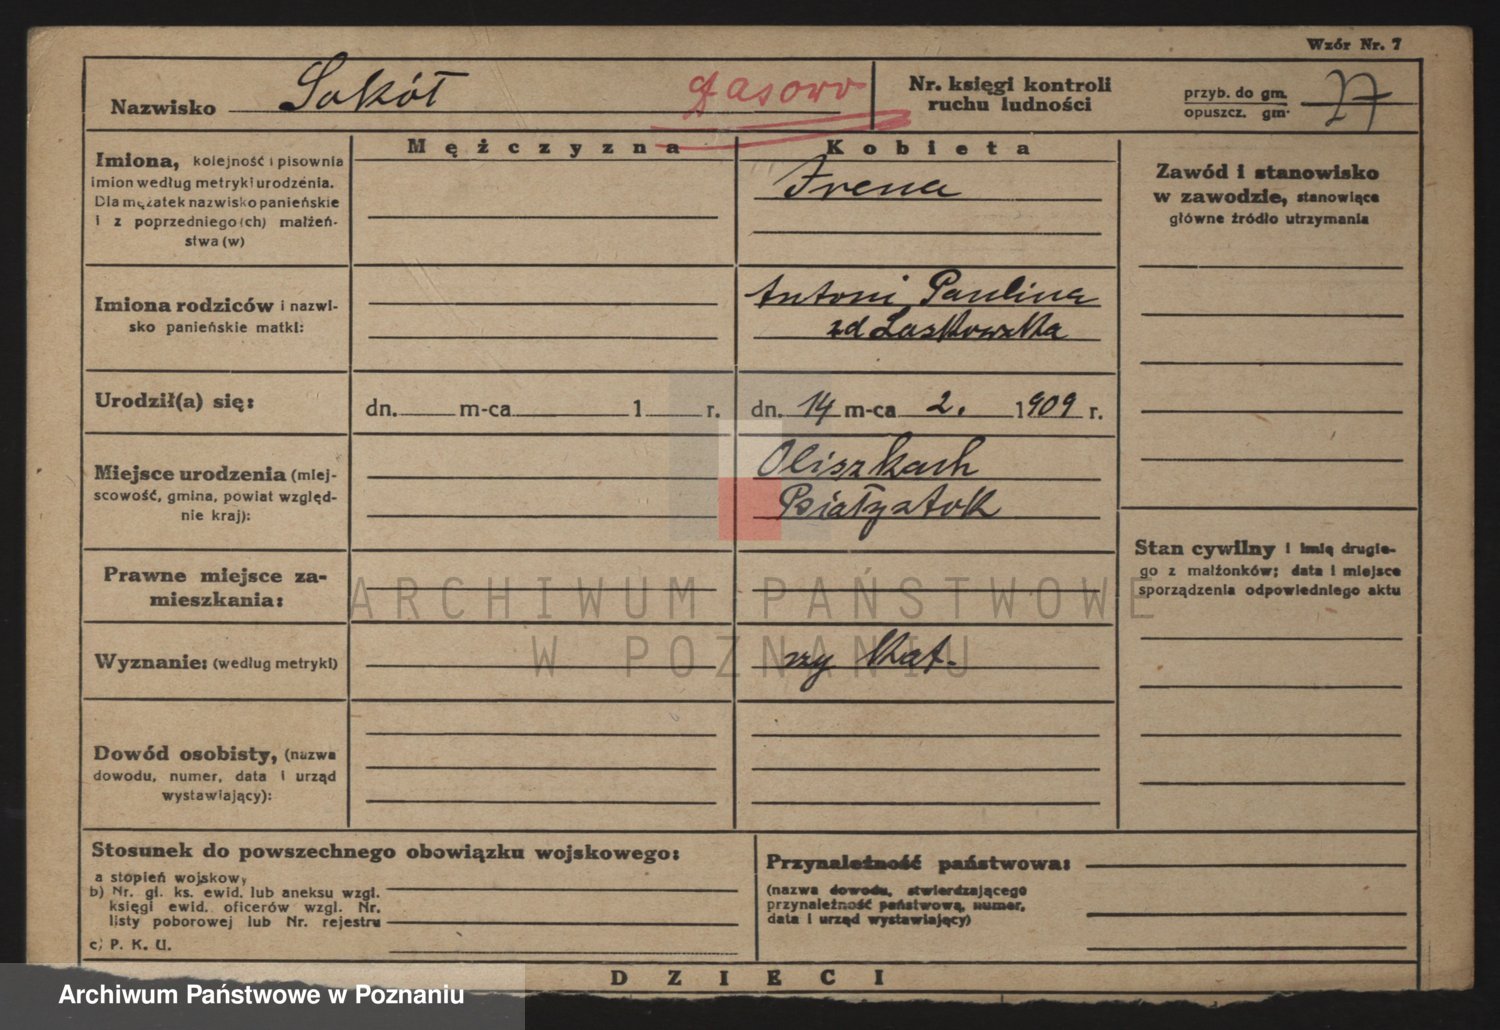 Wzór Nr. 7
Nazwisko Sokół
Nr. księgi kontroli
ruchu ludności
przyb. do gm.
opuszcz. gm.
27
Mężczyzna
Kobieta
Imiona, kolejność i pisownia
imion według metryki urodzenia.
Dla mężatek nazwisko panieńskie
i z poprzedniego(ch) małżeń-
stwa (w)
Irena
Zawód i stanowisko
w zawodzie, stanowiące
główne źródło utrzymania
Imiona rodziców i nazwi-
sko panieńskie matki:
Antoni, Paulina
zd Laskowska
Urodził(a) się:
dn. m-ca 1 r.
dn. 14 m-ca 2. 1909 r.
Miejsce urodzenia (miej-
scowość, gmina, powiat względ-
nie kraj):
Oliszkach
Białystok
Stan cywilny i imię drugie-
go z małżonków; data i miejsce
sporządzenia odpowiedniego aktu
Prawne miejsce za-
mieszkania:
ARCHIWUM PAŃSTWOWE
W POZNANIU
Wyznanie: (według metryki)
rzy kat.
Dowód osobisty, (nazwa
dowodu, numer, data i urząd
wystawiający):
Stosunek do powszechnego obowiązku wojskowego:
a stopień wojskowy
b) Nr. gł. ks. ewid. lub aneksu wzgl.
księgi ewid. oficerów wzgl. Nr.
listy poborowej lub Nr. rejestru
c) P. K. U.
Przynależność państwowa:
(nazwa dowodu, stwierdzającego
przynależność państwową, numer,
data i urząd wystawiający)
DZIECI
Archiwum Państwowe w Poznaniu